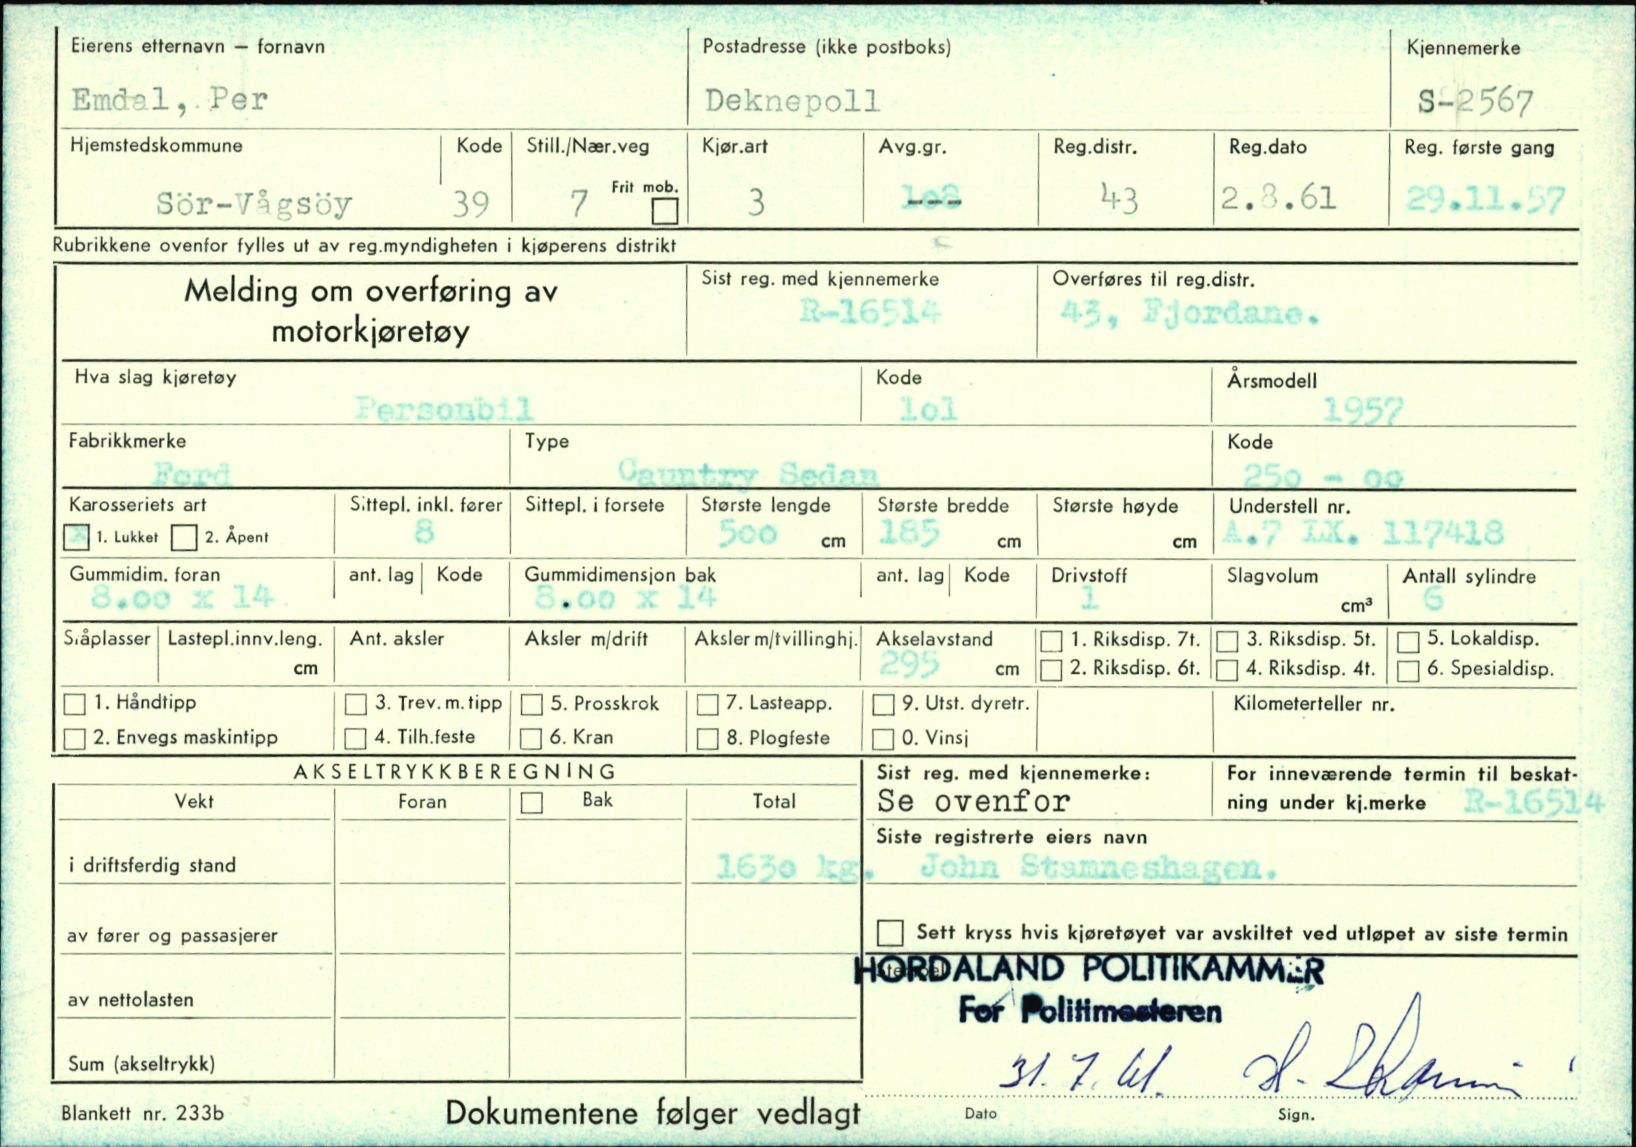 Eierens etternavn – fornavn Postadresse (ikke postboks) Kjennemerke
Emdal, Per Deknepoll S-2567
Hjemstedskommune Kode Still./Nær.veg Kjør.art Avg.gr. Reg.distr. Reg.dato Reg. første gang
Frit mob.
Sör-Vågsöy 39 7 3 43 2.8.61 29.11.57
Rubrikkene ovenfor fylles ut av reg.myndigheten i kjøperens distrikt
Melding om overføring av Sist reg. med kjennemerke Overføres til reg.distr.
motorkjøretøy R-16514 43, Fjordane.
Hva slag kjøretøy Kode Årsmodell
Personbil lol 1957
Fabrikkmerke Type Kode
Ford Cauntry Sedan 25o - oo
Karosseriets art Sittepl. inkl. fører Sittepl. i forsete Største lengde Største bredde Største høyde Understell nr.
x 1. Lukket 2. Åpent 8 5oo cm 185 cm cm A.7 LX. 117418
Gummidim. foran ant. lag Kode Gummidimensjon bak ant. lag Kode Drivstoff Slagvolum Antall sylindre
8.oo x 14 8.oo x 14 1 cm³ 6
Slåplasser Lastepl.innv.leng. Ant. aksler Aksler m/drift Aksler m/tvillinghj. Akselavstand 1. Riksdisp. 7t. 3. Riksdisp. 5t. 5. Lokaldisp.
cm 295 cm 2. Riksdisp. 6t. 4. Riksdisp. 4t. 6. Spesialdisp.
1. Håndtipp 3. Trev. m. tipp 5. Prosskrok 7. Lasteapp. 9. Utst. dyretr. Kilometerteller nr.
2. Envegs maskintipp 4. Tilh.feste 6. Kran 8. Plogfeste 0. Vinsj
AKSELTRYKKBEREGNING Sist reg. med kjennemerke: For inneværende termin til beskat-
Vekt Foran Bak Total Se ovenfor ning under kj.merke R-16514
Siste registrerte eiers navn
i driftsferdig stand 163o kg. John Stamneshagen.
av fører og passasjerer Sett kryss hvis kjøretøyet var avskiltet ved utløpet av siste termin
HORDALAND POLITIKAMMER
av nettolasten For Politimesteren
Sum (akseltrykk) 31. 7. 61.
Blankett nr. 233b Dokumentene følger vedlagt Dato Sign.